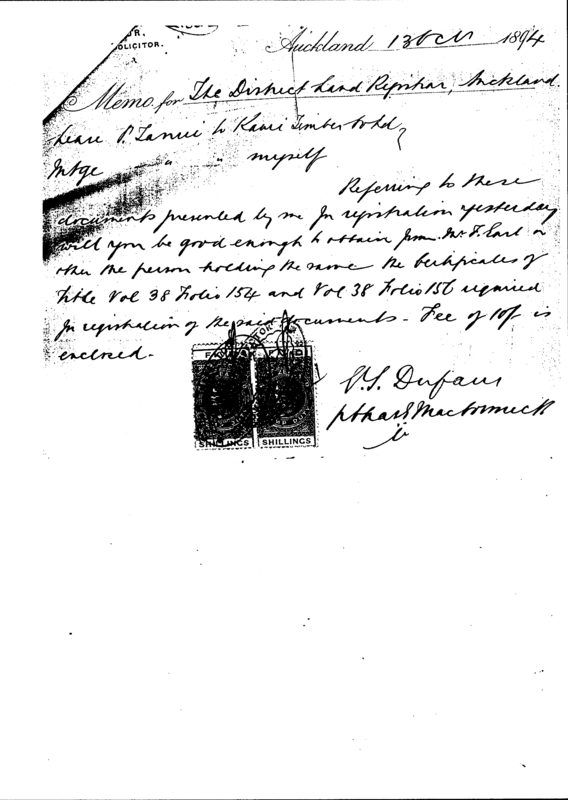 OLICITOR.
Auckland 13 Oct 1894
Memo for The District Land Registrar, Auckland.
Lease P. to Kauri Timber Co Ld
Mtge " " myself
Referring to these
documents presented by me for registration yesterday
will you be good enough to obtain from Mr F. Earl or
other the person holding the same the Certificates of
Title Vol 38 Folio 154 and Vol 38 Folio 156 required
for registration of the said documents - Fee of 10/- is
enclosed.
SHILLINGS SHILLINGS
Dufaur
MacCormick